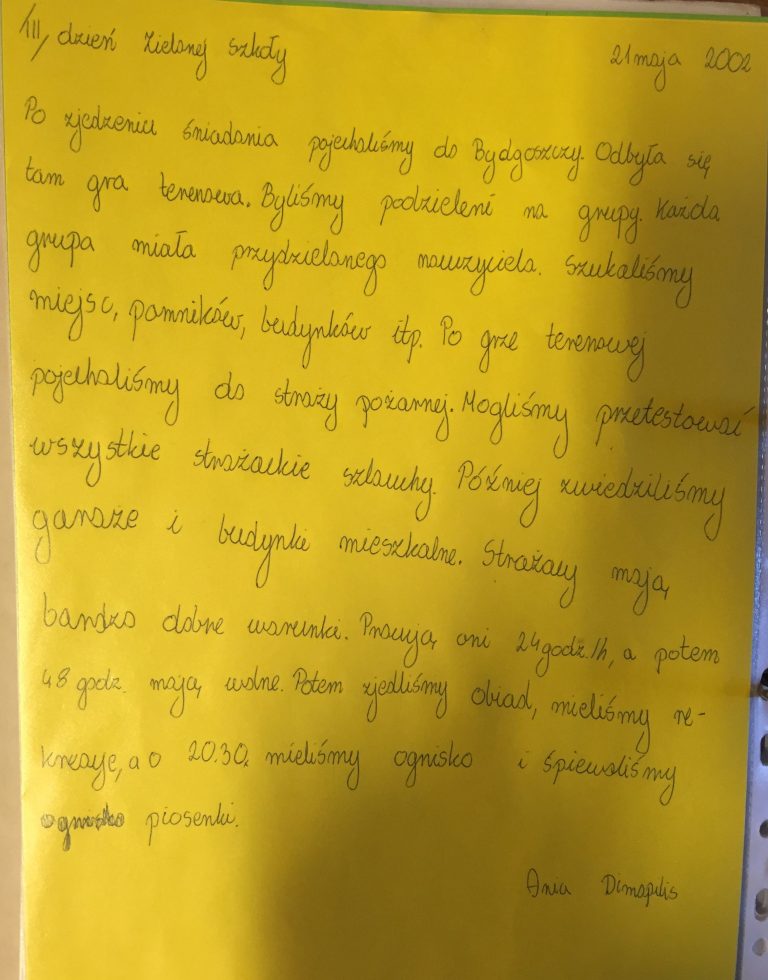 III, dzień Zielonej szkoły 21 maja 2002
Po zjedzeniu śniadania pojechaliśmy do Bydgoszczy. Odbyła się
tam gra terenowa. Byliśmy podzieleni na grupy. Każda
grupa miała przydzielonego nauczyciela. Szukaliśmy
miejsc, pomników, budynków itp. Po grze terenowej
pojechaliśmy do straży pożarnej. Mogliśmy przetestować
wszystkie strażackie szlauchy. Później zwiedziliśmy
garaże i budynki mieszkalne. Strażacy mają
bardzo dobre warunki. Pracują oni 24 godz./h, a potem
48 godz. mają wolne. Potem zjedliśmy obiad, mieliśmy re-
kreację, a o 20.30 mieliśmy ognisko i śpiewaliśmy
ognisko piosenki.
Ania Dimopilis